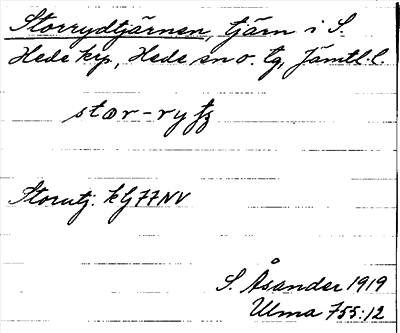 Storrydtjärnen, tjärn i S.
Hede krp, Hede sn o. tg, Jämtl. l.
stor-ry
Storutj. kg 77NV
S. Åsander 1919
Ulma 755:12